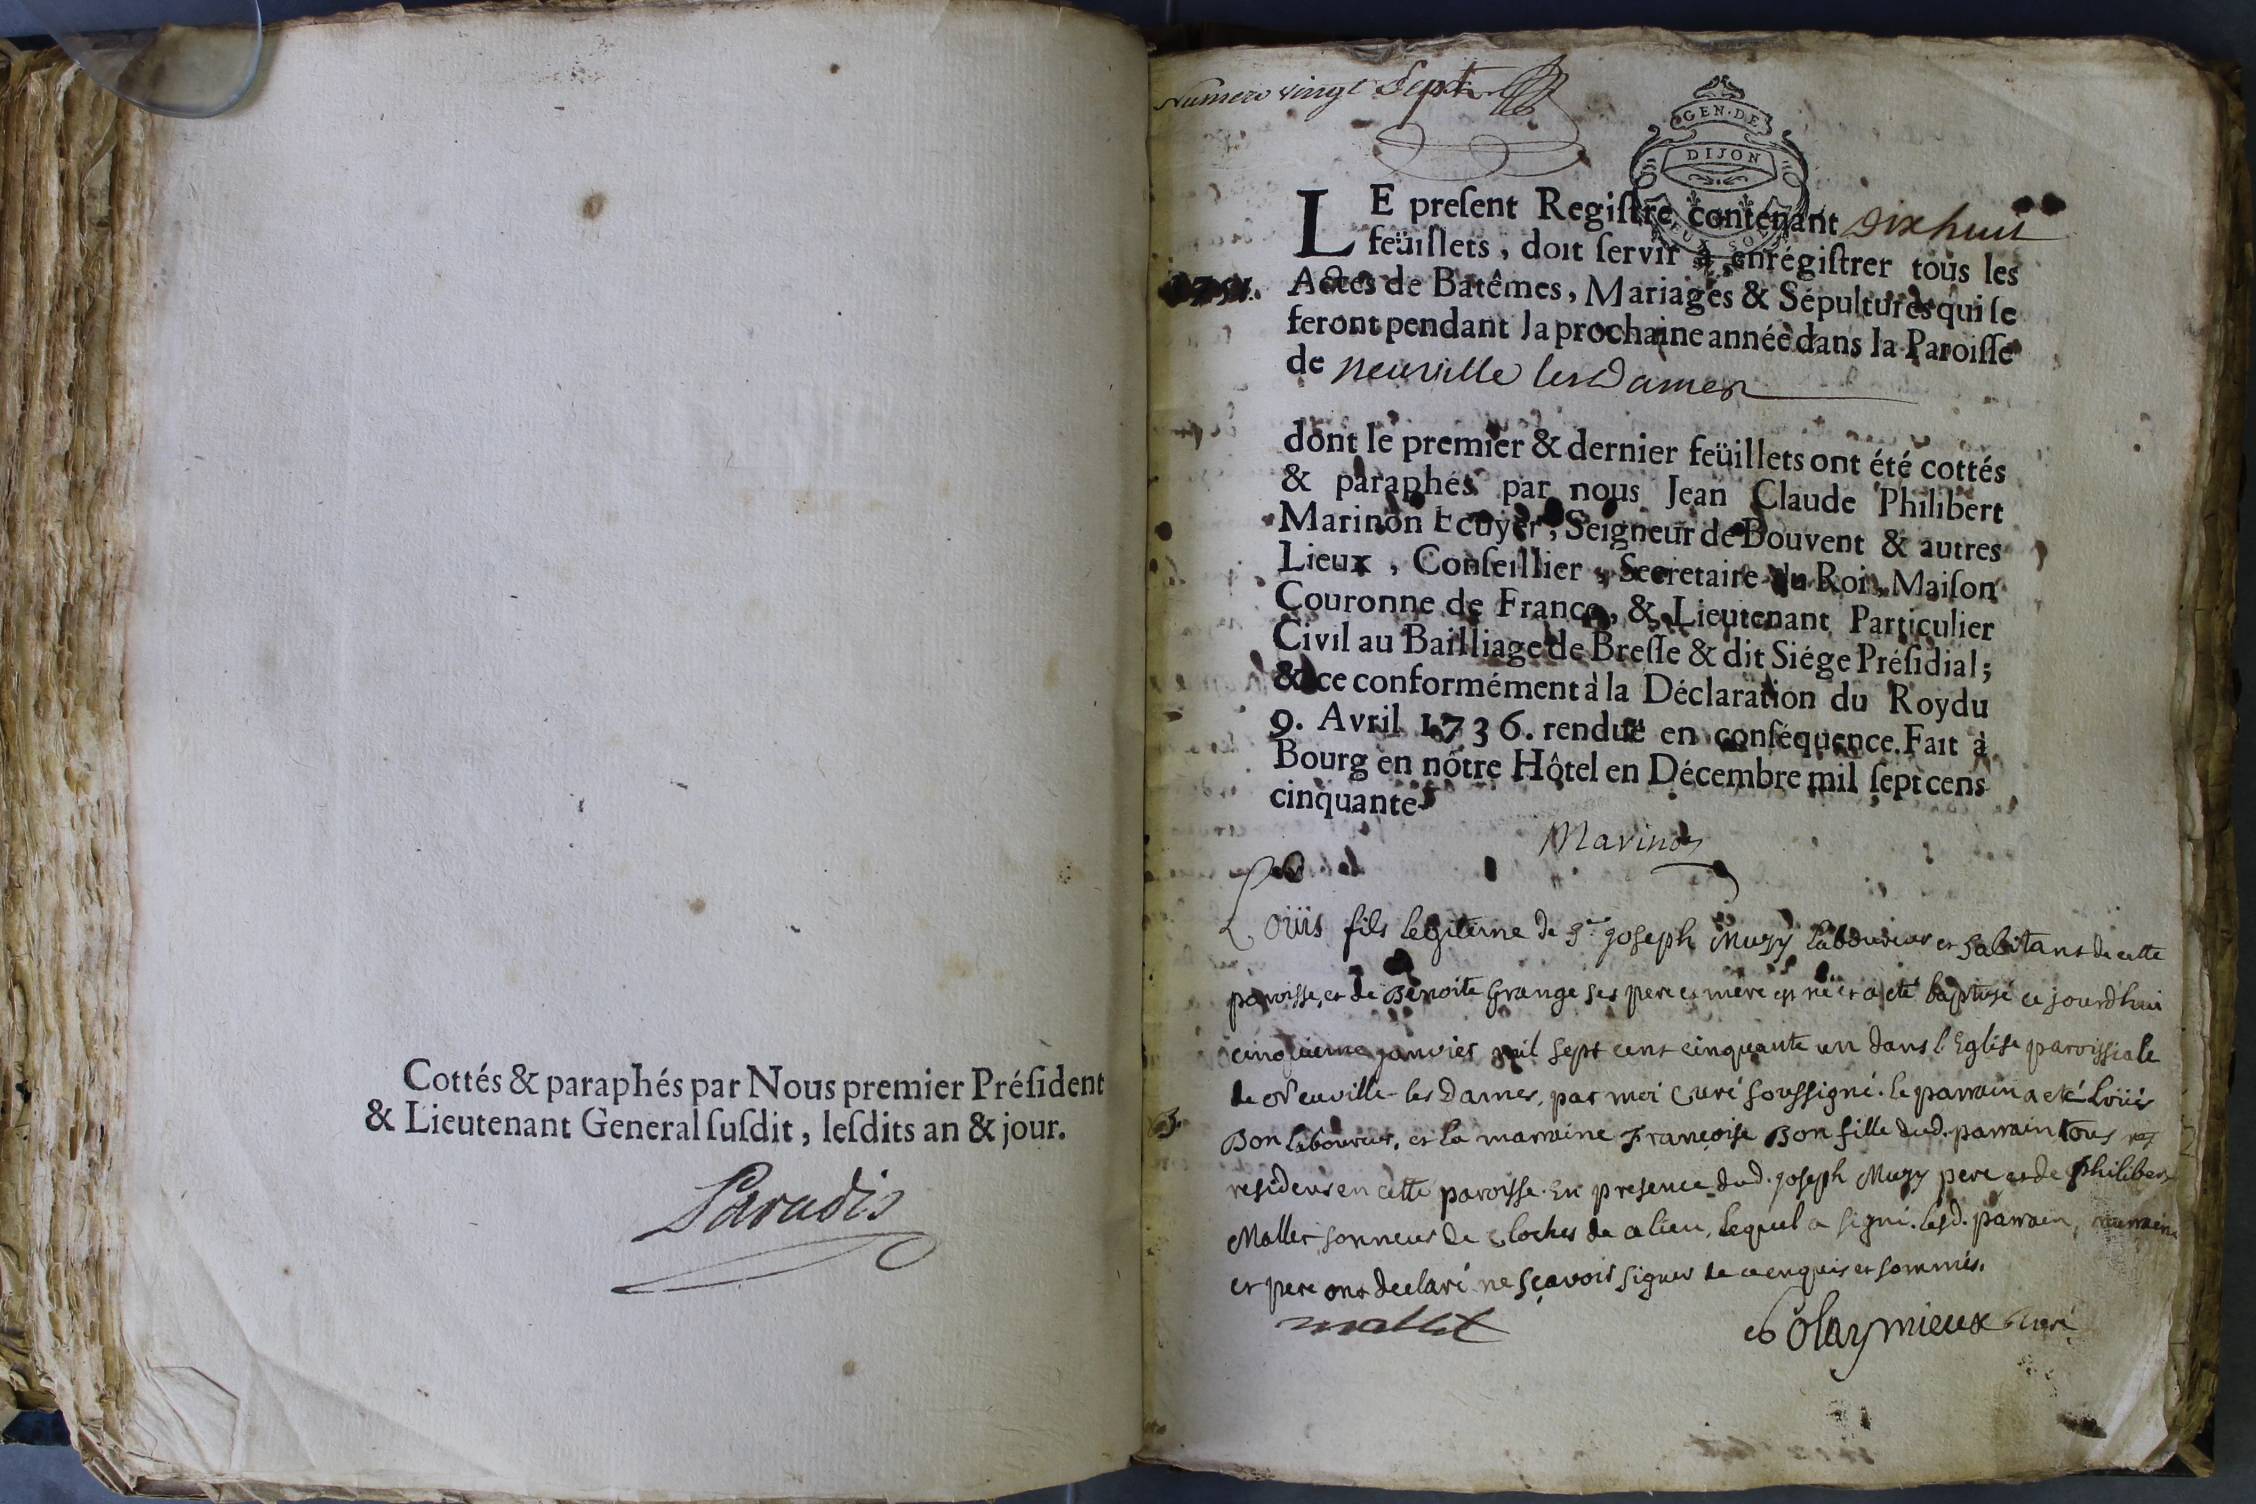 Cottés & paraphés par Nous premier Préſident
& Lieutenant General ſuſdit, leſdits an & jour.
Paradis
Numero vingt Sept
GEN·DE
DIJON
LE preſent Regiſtre contenant dix huit
feüillets, doit ſervir à enrégiſtrer tous les
1751.
Actes de Batêmes, Mariages & Sépultures qui ſe
feront pendant la prochaine année dans la Paroiſſe
de neuville les Dames
dont le premier & dernier feüillets ont été cottés
& paraphés par nous Jean Claude Philibert
Marinon Ecuyer, Seigneur de Bouvent & autres
Lieux, Conſeillier, Secretaire du Roi, Maiſon
Couronne de France, & Lieutenant Particulier
Civil au Bailliage de Breſſe & dit Siége Préſidial;
& ce conformément à la Déclaration du Roy du
9. Avril 1736. renduë en conſéquence. Fait à
Bourg en nôtre Hôtel en Décembre mil ſept cens
cinquante
Marinon
Loüis fils legitime de Sr. joseph Muzy laboureur et habitant de cette
paroisse, et de Benoite Grange ses pere et mere est né et a eté baptisé ce jourdhui
cinquieme janvier mil sept cent cinquante un dans l'Eglise paroissiale
de Neuville-les Dames, par moi Curé soussigné. le parrain a eté Loüis
Bon laboureur, et la marraine Françoise Bon fille dud. parrain tous
residens en cette paroisse. En presence dud. joseph Muzy pere et de philibert
Mallet sonneur de cloches de ce lieu, lequel a signé. lesd. parrain, marraine
et pere ont declaré ne sçavoir signer de ce enquis et sommés.
mallet
Colaymieux Curé